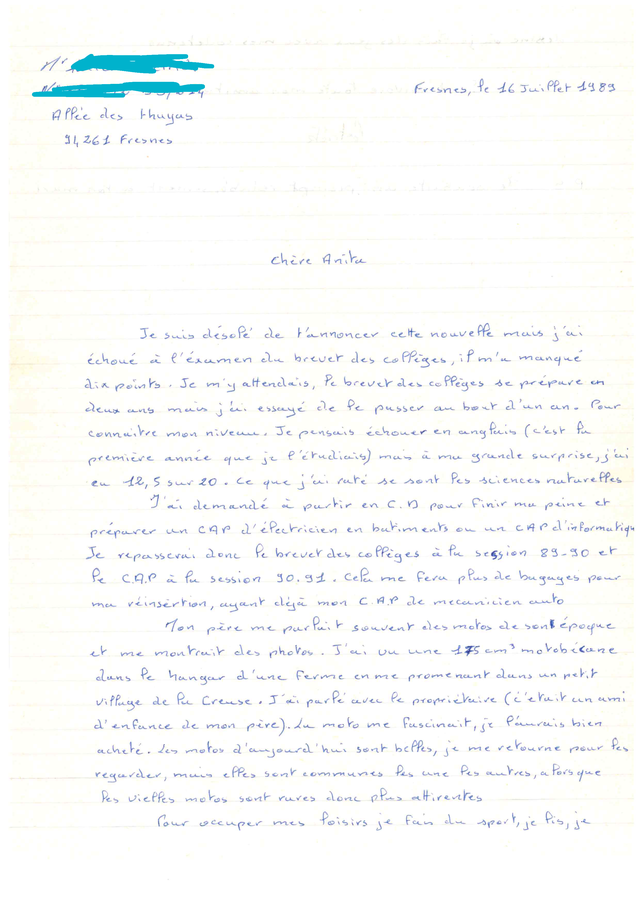 Mr
Allée des thuyas
94261 Fresnes
Fresnes, le 16 Juillet 1989
Chère Anita
Je suis désolé de t'annoncer cette nouvelle mais j'ai
échoué à l'éxamen du brevet des collèges, il m'a manqué
dix points. Je m'y attendais, le brevet des collèges se prépare en
deux ans mais j'ai essayé de le passer au bout d'un an. Pour
connaitre mon niveau. Je pensais échouer en anglais (c'est la
première année que je l'étudiais) mais à ma grande surprise, j'ai
eu 12,5 sur 20. Ce que j'ai raté se sont les sciences naturelles
J'ai demandé à partir en C.D pour finir ma peine et
préparer un CAP d'électricien en batiments ou un CAP d'informatique
Je repasserai donc le brevet des collèges à la session 89-90 et
le C.A.P à la session 90.91. Cela me fera plus de bagages pour
ma réinsértion, ayant déjà mon C.A.P de mecanicien auto
Mon père me parlait souvent des motos de son époque
et me montrait des photos. J'ai vu une 175 cm³ motobécane
dans le hangar d'une ferme en me promenant dans un petit
village de la Creuse. J'ai parlé avec le propriétaire (c'était un ami
d'enfance de mon père). La moto me fascinait, je l'aurais bien
acheté. Les motos d'aujourd'hui sont belles, je me retourne pour les
regarder, mais elles sont communes les une les autres, alorsque
les vielles motos sont rares donc plus attirentes
Pour occuper mes loisirs je fais du sport, je lis, je